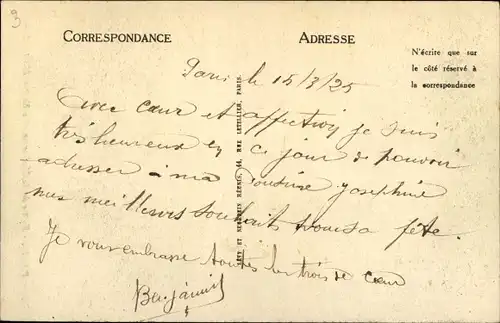 3
CORRESPONDANCE
ADRESSE
N'écrite que sur
le côté réservé à
la correspondance
Paris le 15/3/25
Avec cœur et affection je suis
très heureux en ce jour de pouvoir
adresser à ma Cousine Joséphine
mes meilleurs souhaits pour sa fête.
Je vous embrasse toutes les trois de cœur
Benjamin
LÉVY ET NEURDEIN RÉUNIS, 44, RUE LETELLIER, PARIS